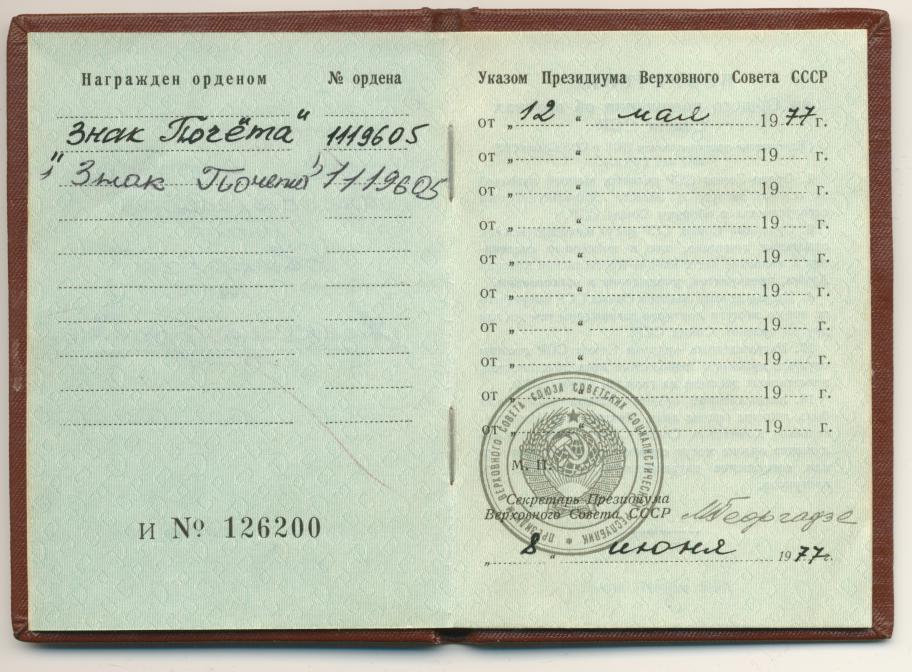 Награжден орденом
№ ордена
"Знак Почёта"
1119605
"Знак Почета"
1119605
И № 126200
Указом Президиума Верховного Совета СССР
от „12“ мая 1977 г.
от „ “ 19 г.
от „ “ 19 г.
от „ “ 19 г.
от „ “ 19 г.
от „ “ 19 г.
от „ “ 19 г.
от „ “ 19 г.
от „ “ 19 г.
от „ “ 19 г.
ПРЕЗИДИУМ ВЕРХОВНОГО СОВЕТА СОЮЗА СОВЕТСКИХ СОЦИАЛИСТИЧЕСКИХ РЕСПУБЛИК
М. П.
Секретарь Президиума
Верховного Совета СССР
МГеоргадзе
„8“ июня 1977 г.